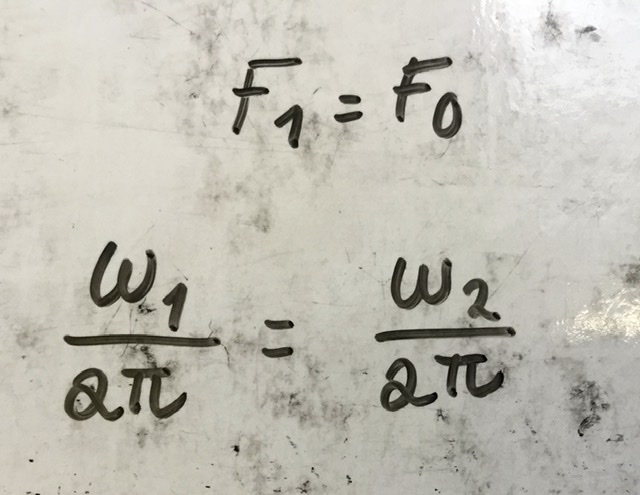 F₁ = F₀
ω₁/2π = ω₂/2π